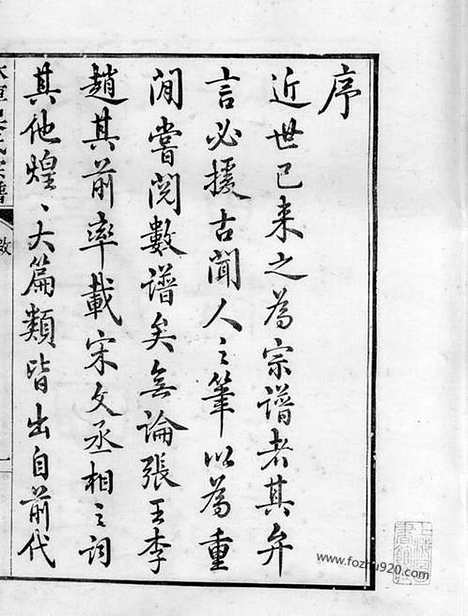 序
近世已来之為宗譜者其弁
言必援古聞人之筆以為重
閒嘗閲數譜矣無論張王李
趙其前率載宋文丞相之詞
其他煌〻大篇類皆出自前代
氏宗譜
www.fozhu920.com